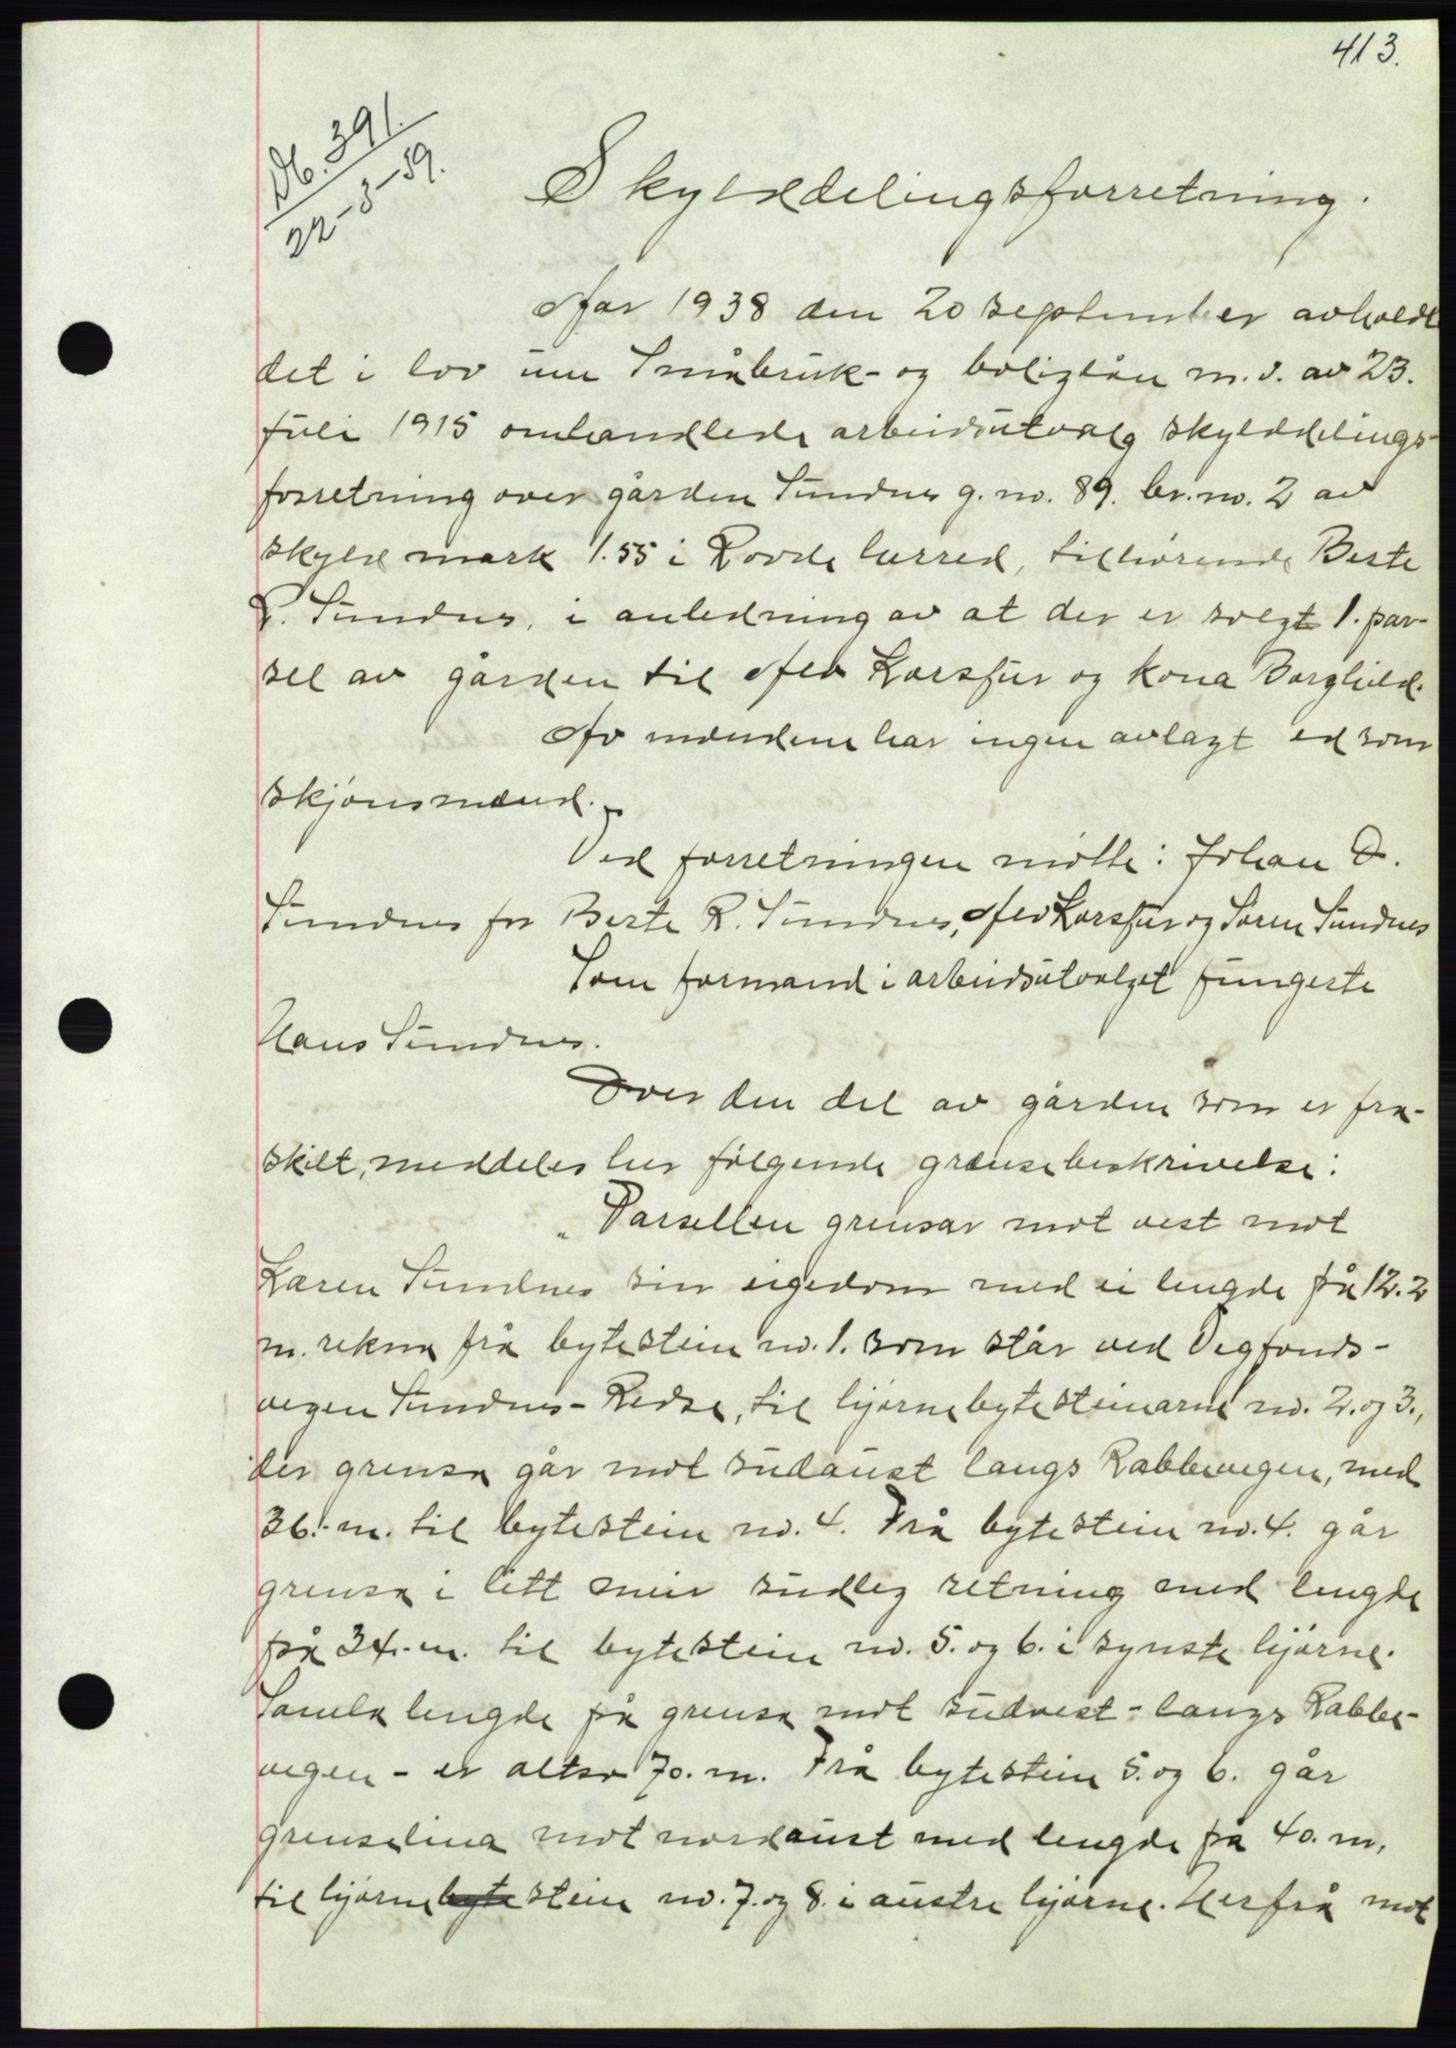 413.
Db. 391.
22-3-39.
Skylddelingsforretning.
Aar 1938 den 20 september avholdt
det i lov um Småbruk- og boliglån m.v. av 23.
juli 1915 omhandlede arbeidsutvalg skylddelings-
forretning over gården Sundnes g.no. 89. br.no. 2 av
skyld mark 1.55 i Rovde herred, tilhörende Berte
R. Sundnes, i anledning av at der er solgt 1. par-
sel av gården til Alv Korsfur og kona Borghild.
Av mændene har ingen avlagt ed som
skjönsmænd.
Ved forretningen mötte: Johan O.
Sundnes for Berte R. Sundnes, Alv Korsfur og Sören Sundnes
Som formand i arbeidsutvalget fungerte
Hans Sundnes.
Over den del av gården som er fra-
skilt, meddeles her fölgende grænsebeskrivelse:
"Parsellen grensar mot vest mot
Karen Sundnes sin eigedom med ei lengde på 12.2
m. rekna frå bytestein no. 1. som står ved Vegfonds-
vegen Sundnes - Redse, til hjörnebytesteinarne no. 2. og 3.,
der grensa går mot sudaust langs Rabbevegen, med
36.- m. til bytestein no. 4. Frå bytestein no. 4. går
grensa i litt meir sudleg retning med lengde
på 34.- m. til bytestein no. 5. og 6. i synste hjörne.
Samla lengde på grensa mot sudvest - langs Rabbe-
vegen - er altso 70. m. Frå bytestein 5. og 6. går
grenselina mot nordaust med lengde på 40. m.
til hjörnebytestein no. 7. og 8. i austre hjörne. Herfrå mot